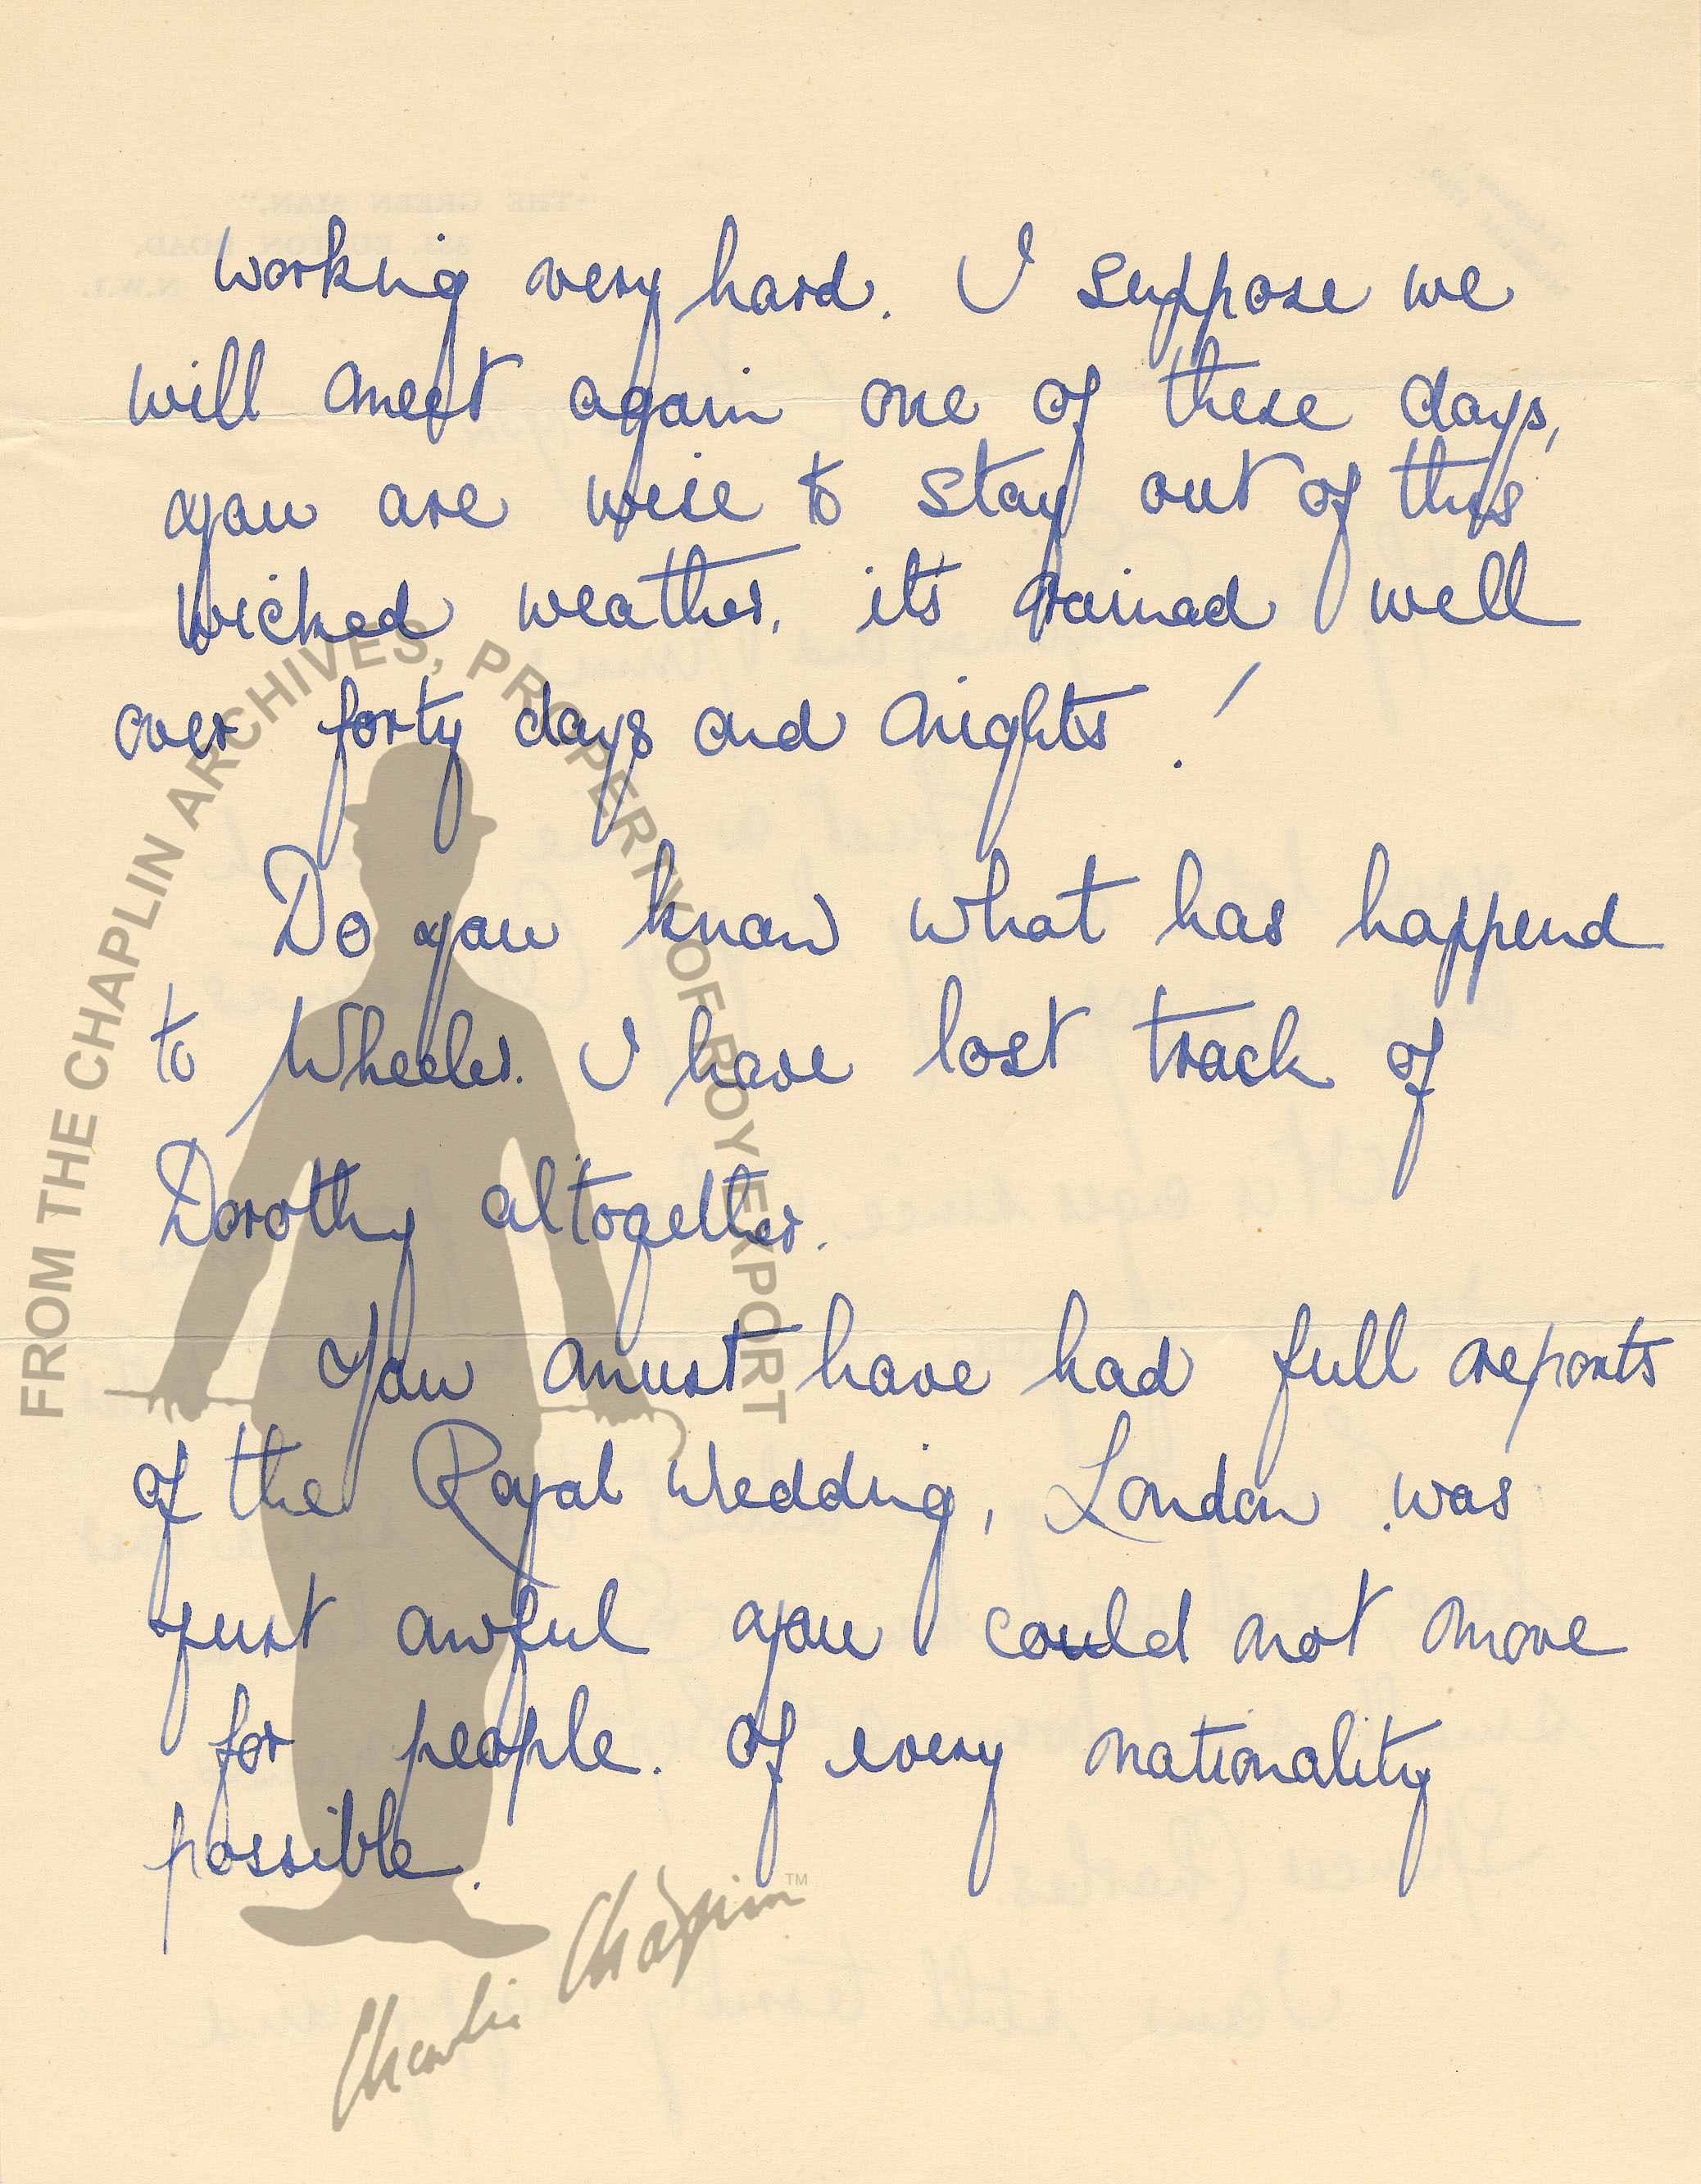 working very hard. I suppose we
will meet again one of these days,
you are wise to stay out of this
wicked weather. it's rained well
over forty days and nights !
Do you know what has happend
to Wheeler. I have lost track of
Dorothy altogether.
You must have had full reports
of the Royal Wedding, London was
just awful you could not move
for people. of every nationality
possible.
FROM THE CHAPLIN ARCHIVES, PROPERTY OF ROY EXPORT
Charlie Chaplin™
"THE GREEN MAN."
383, EUSTON ROAD,
N.W.1.